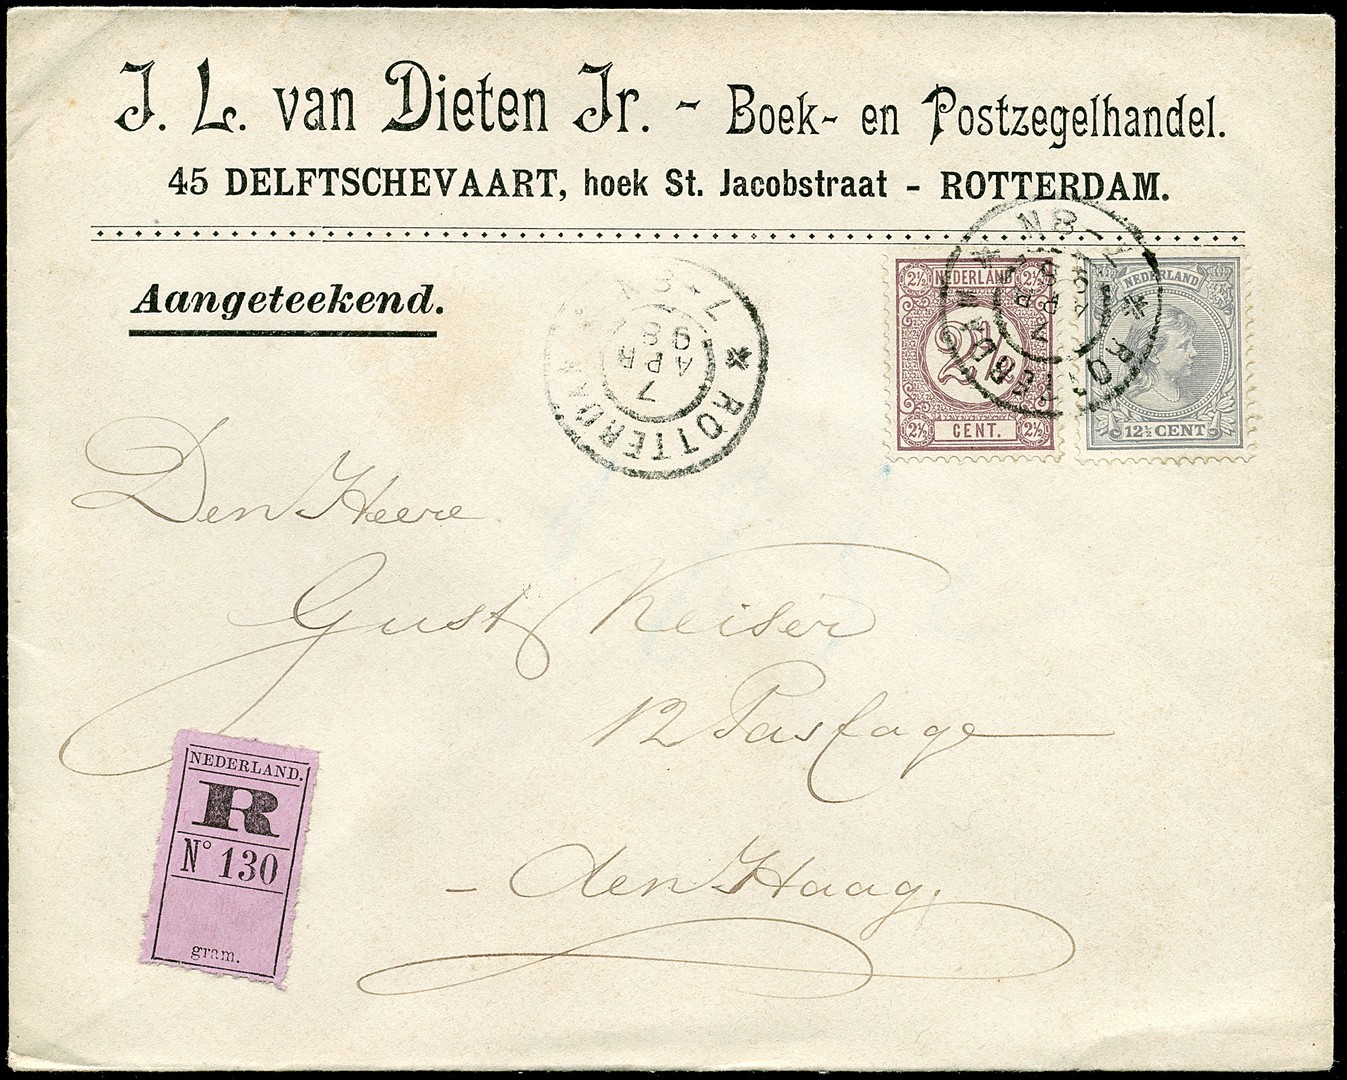 J. L. van Dieten Jr. - Boek- en Postzegelhandel.
45 DELFTSCHEVAART, hoek St. Jacobstraat - ROTTERDAM.
Aangeteekend.
ROTTERDAM
7 APR 98
NEDERLAND
2½ 2½
2½
CENT.
2½ 2½
NEDERLAND
12½ CENT
Den Heere
Gust Keiser
12 Passage
- den Haag.
NEDERLAND.
R
N° 130
gram.